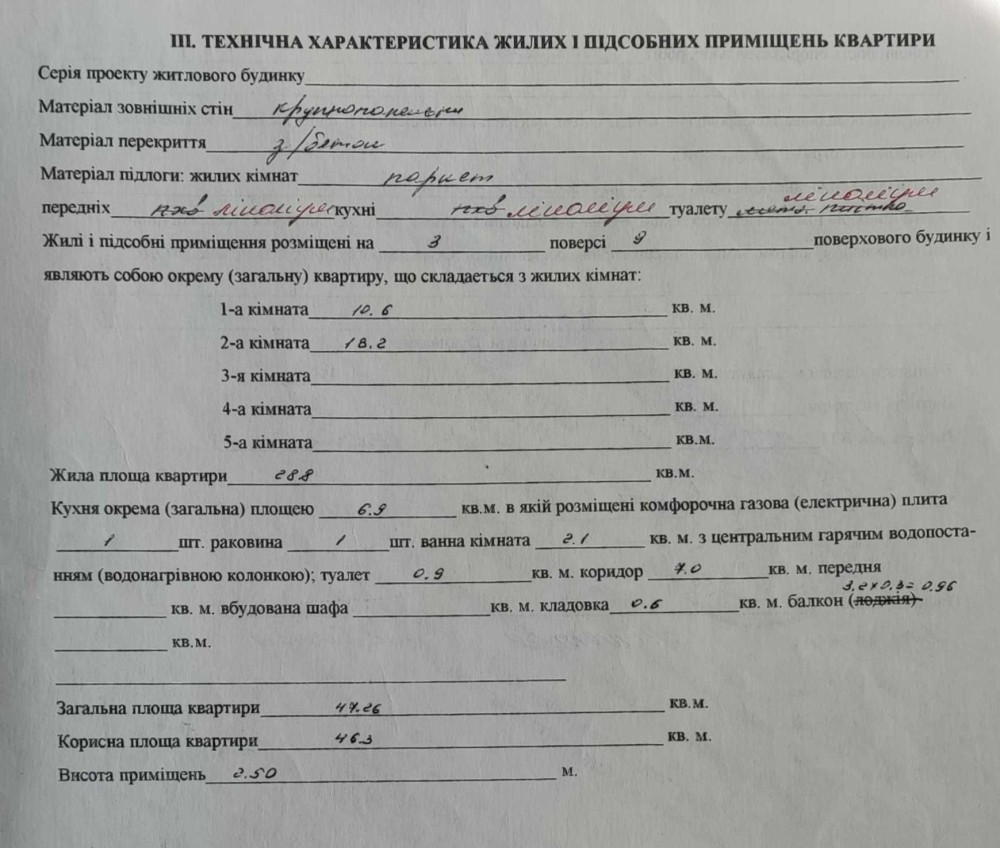 III. ТЕХНІЧНА ХАРАКТЕРИСТИКА ЖИЛИХ І ПІДСОБНИХ ПРИМІЩЕНЬ КВАРТИРИ
Серія проекту житлового будинку
Матеріал зовнішніх стін крупнопанельні
Матеріал перекриття з/бетон
Матеріал підлоги: жилих кімнат паркет
лінолеум
передніх пхв лінолеум кухні пхв лінолеум туалету
Жилі і підсобні приміщення розміщені на 3 поверсі 9 поверхового будинку і
являють собою окрему (загальну) квартиру, що складається з жилих кімнат:
1-а кімната 10.6 кв. м.
2-а кімната 18.2 кв. м.
3-я кімната кв. м.
4-а кімната кв. м.
5-а кімната кв.м.
Жила площа квартири 28.8 кв.м.
Кухня окрема (загальна) площею 6.9 кв.м. в якій розміщені комфорочна газова (електрична) плита
1 шт. раковина 1 шт. ванна кімната 2.1 кв. м. з центральним гарячим водопоста-
нням (водонагрівною колонкою); туалет 0.9 кв. м. коридор 7.0 кв. м. передня
3,2х0,3=0,96
кв. м. вбудована шафа кв. м. кладовка 0.6 кв. м. балкон (лоджія)
кв.м.
Загальна площа квартири 47.26 кв.м.
Корисна площа квартири 46.3 кв. м.
Висота приміщень 2.50 м.